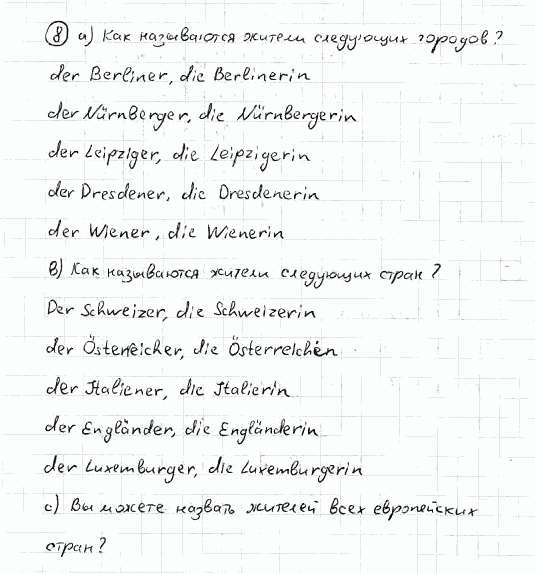 ⑧ а) Как называются жители следующих городов?
der Berliner, die Berlinerin
der Nürnberger, die Nürnbergerin
der Leipziger, die Leipzigerin
der Dresdener, die Dresdenerin
der Wiener, die Wienerin
в) Как называются жители следующих стран?
Der Schweizer, die Schweizerin
der Österreicher, die Österreichen
der Italiener, die Italierin
der Engländer, die Engländerin
der Luxemburger, die Luxemburgerin
с) Вы можете назвать жителей всех европейских
стран?